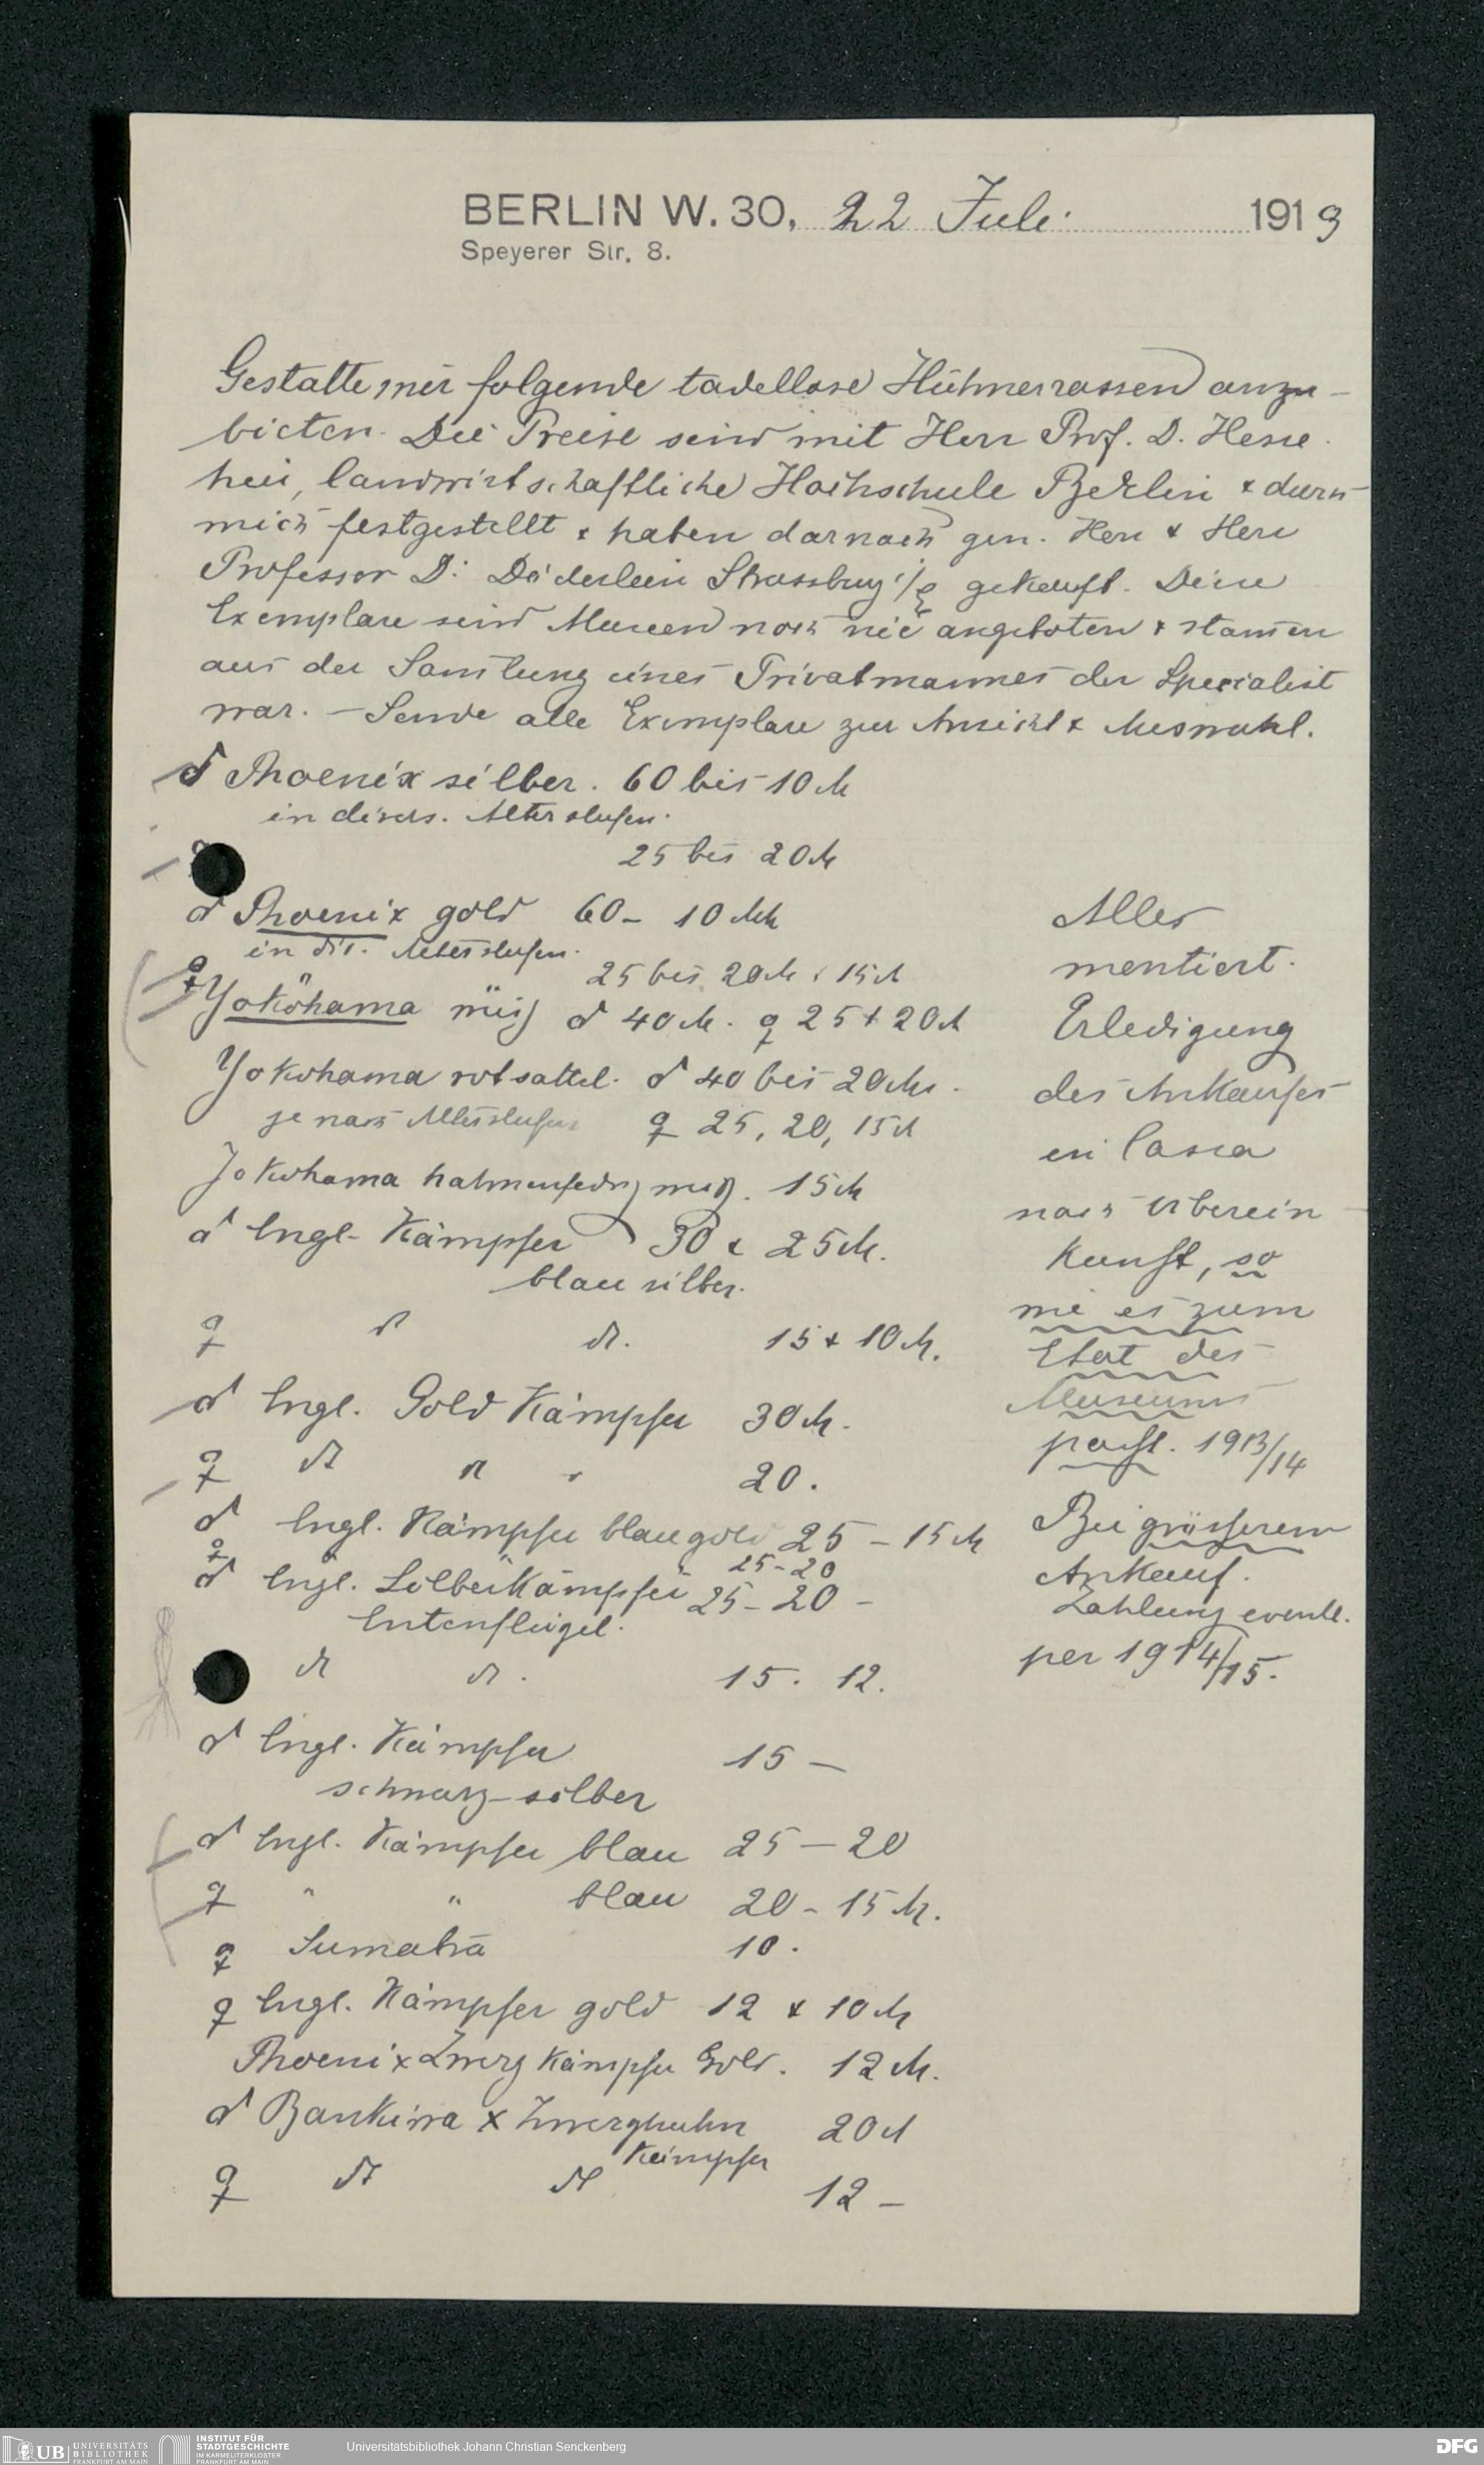 BERLIN W. 30, 22 Juli 1913
Speyerer Str. 8.
Gestatte mir folgende tadellose Hühnerrassen anzu-
bieten. Die Preise sind mit Herr Prof. D. Hesse
hier, landwirtschaftliche Hochschule Berlin & durch
mich festgestellt & haben darnach gen. Herr & Herr
Professor Dr Döderlein Strassburg i/E gekauft. Diese
Exemplare sind Museen noch nie angeboten & stam̄en
aus der Sam̄lung eines Privatmannes der Specialist
war. — Sende alle Exemplare zur Ansicht & Auswahl.
♂ Phoenix silber. 60 bis 10 M
in divers. Altersstufen.
25 bis 20 M
♂ Phoenix gold 60 – 10 Mk
in div. Altersstufen.
♀ 25 bis 20 M 15 M
Yokohama weiß ♂ 40 M. ♀ 25 + 20 M
Yokohama rotsattel. ♂ 40 bis 20 M.
je nach Altersstufen ♀ 25, 20, 15 M
Yokohama hahnenfedrig weiß. 15 M
♂ Engl. Kämpfer 30 & 25 M.
blau silber.
♀ dt dt. 15 + 10 M.
♂ Engl. Gold Kämpfer 30 M.
♀ dt " " 20.
♂ Engl. Kämpfer blaugold 25 – 15 M
♀ 25 – 20
♂ Engl. Silberkämpfer 25 – 20 –
Entenflügel.
dt dt. 15. 12.
♂ Engl. Kämpfer 15 —
schwarz-silber
♂ Engl. Kämpfer blau 25 — 20
♀ " " blau 20 – 15 M.
♀ Sumatra 10.
♀ Engl. Kämpfer gold 12 & 10 M
Phoenix x Zwerg Kämpfer Gold. 12 M.
♂ Bankiva x Zwerghuhn 20 M
Kämpfer
♀ dt dt 12 –
Alles
mentiert.
Erledigung
des Ankaufes
in Cassa
nach Überein-
kunft, so
wie es zum
Etat des
Museums
passt. 1913/14
Bei grösserem
Ankauf.
Zahlung eventl.
per 1914/15.
UB UNIVERSITÄTS
BIBLIOTHEK
FRANKFURT AM MAIN
INSTITUT FÜR
STADTGESCHICHTE
IM KARMELITERKLOSTER
FRANKFURT AM MAIN
Universitätsbibliothek Johann Christian Senckenberg
DFG